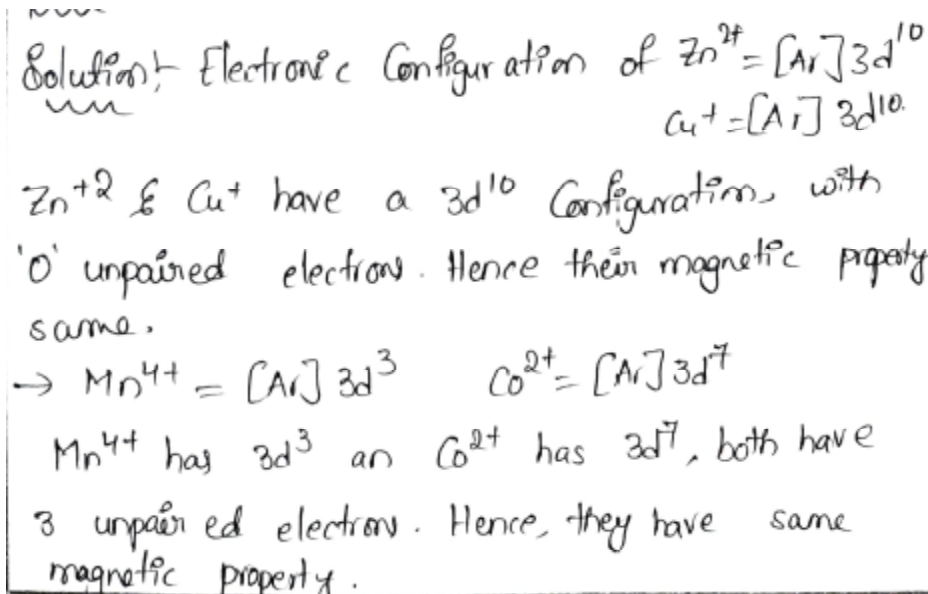 Solution:- Electronic Configuration of Zn²⁺ = [Ar] 3d¹⁰
Cu⁺ = [Ar] 3d¹⁰.
Zn⁺² & Cu⁺ have a 3d¹⁰ Configuration, with
'0' unpaired electrons. Hence their magnetic property
same.
→ Mn⁴⁺ = [Ar] 3d³ Co²⁺ = [Ar] 3d⁷
Mn⁴⁺ has 3d³ an Co²⁺ has 3d⁷, both have
3 unpair ed electrons. Hence, they have same
magnetic property.